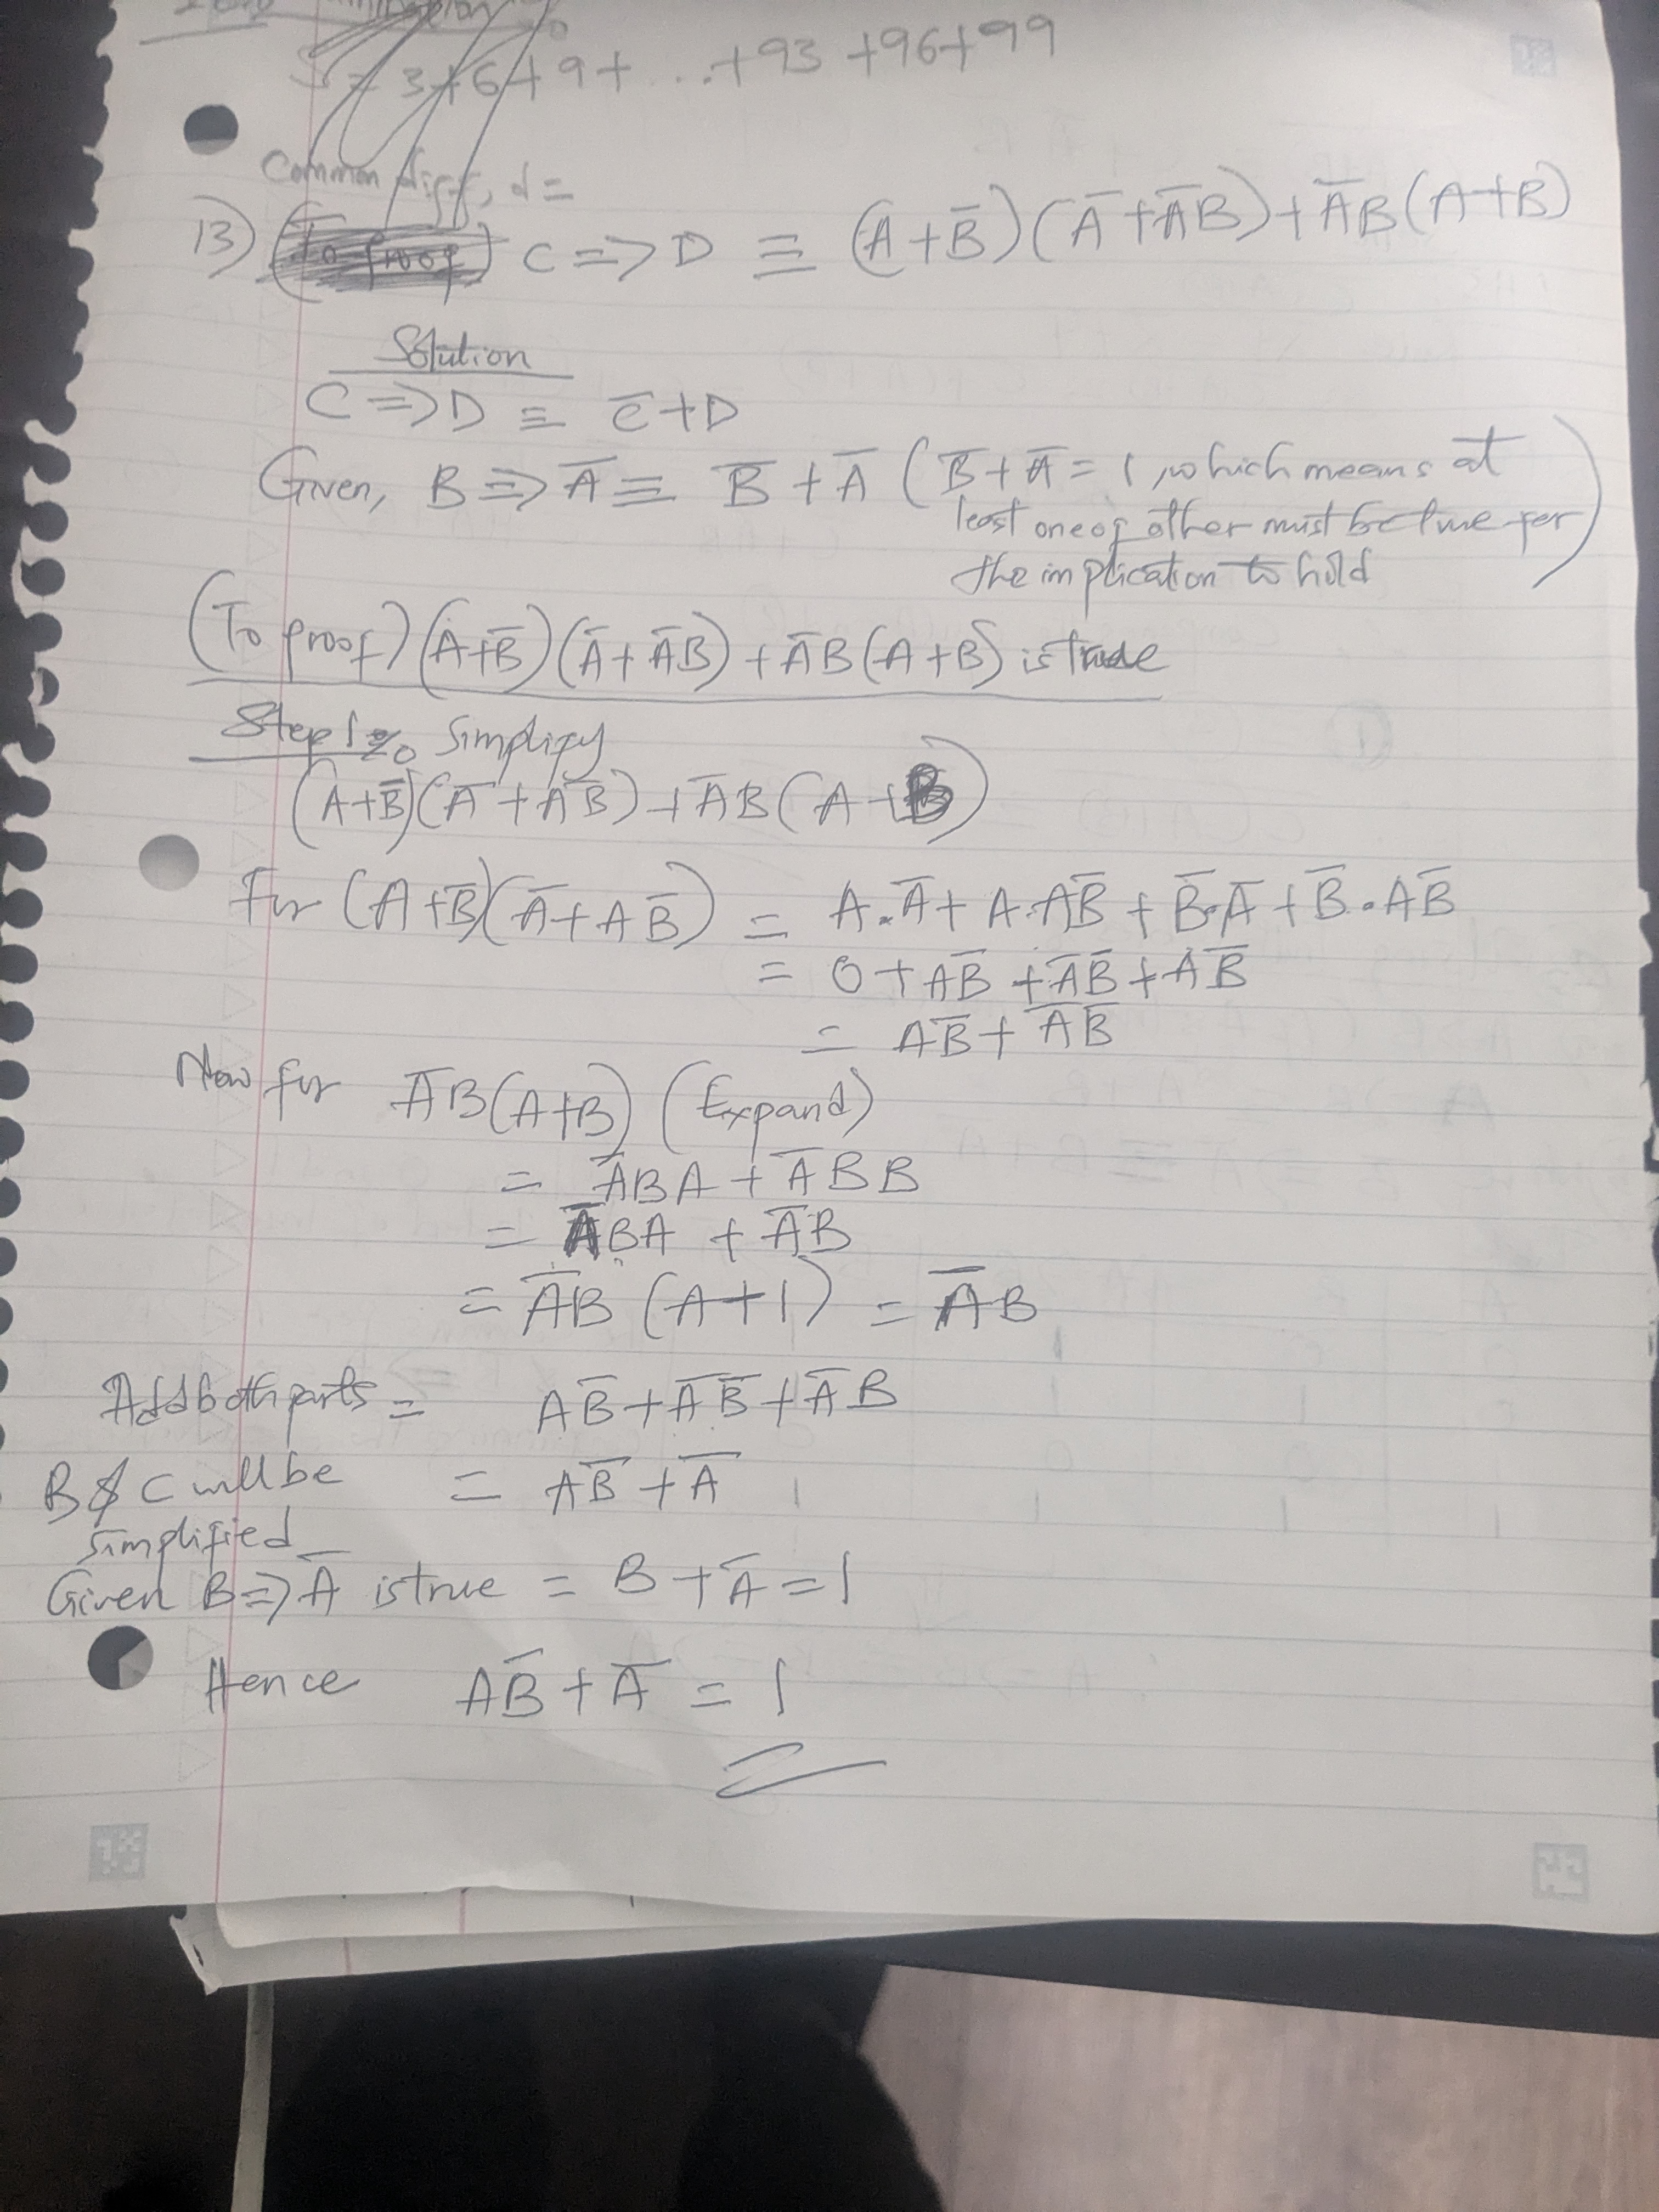 S = 3+6+9+ ...+93 +96+99
Common diff, d =
13) (To proof) C => D ≡ (A+B̅)(A̅+A̅B)+A̅B(A+B)
Solution
C => D ≡ C̅+D
Given, B => A̅ ≡ B̅ + A̅ (B̅+A̅ = 1, which means at
least one of other must be true for
the implication to hold)
(To proof) (A+B̅)(A̅+A̅B)+A̅B(A+B) is true
Step 1: Simplify
(A+B̅)(A̅+AB̅)+A̅B(A+B)
For (A+B̅)(A̅+AB̅) = A.A̅+A.AB̅+B̅.A̅+B̅.AB̅
= 0+AB̅+A̅B̅+AB̅
= AB̅+A̅B̅
Now for A̅B(A+B) (Expand)
= A̅BA+A̅BB
= A̅BA + A̅B
= A̅B (A+1) = A̅B
Add both parts = AB̅+A̅B̅+A̅B
B & C will be = AB̅+A̅
simplified
Given B=>A̅ is true = B+A̅=1
Hence AB̅+A̅ = 1